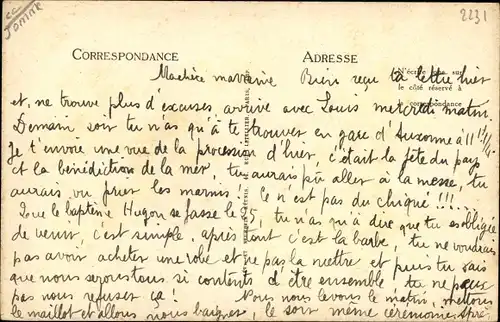 2231
CORRESPONDANCE
ADRESSE
N'écrire que sur
le côté réservé à
la correspondance
Ma chère marraine Bien reçu ta lettre hier
et, ne trouve plus d'excuses arrive avec Louis mercredi matin.
Demain soir tu n'as qu'à te trouver en gare d'Auxonne à 11
Je t'envoie une vue de la procession d'hier, c'était la fête du pays
et la bénédiction de la mer, tu aurais pu aller à la messe, tu
aurais pu prier les marins! Ce n'est pas du chiqué !!!...
Que le baptême Hugon se fasse le 25, tu n'as qu'à dire que tu es obligée
de venir, c'est simple, après tout c'est la barbe, tu ne voudrais
pas avoir acheter une robe et ne pas la mettre et puis tu sais
que nous serons tous si contents d'être ensemble tu ne peux
pas nous refuser ça! Nous nous levons le matin, mettons
le maillot et allons nous baigner, le soir même cérémonie,